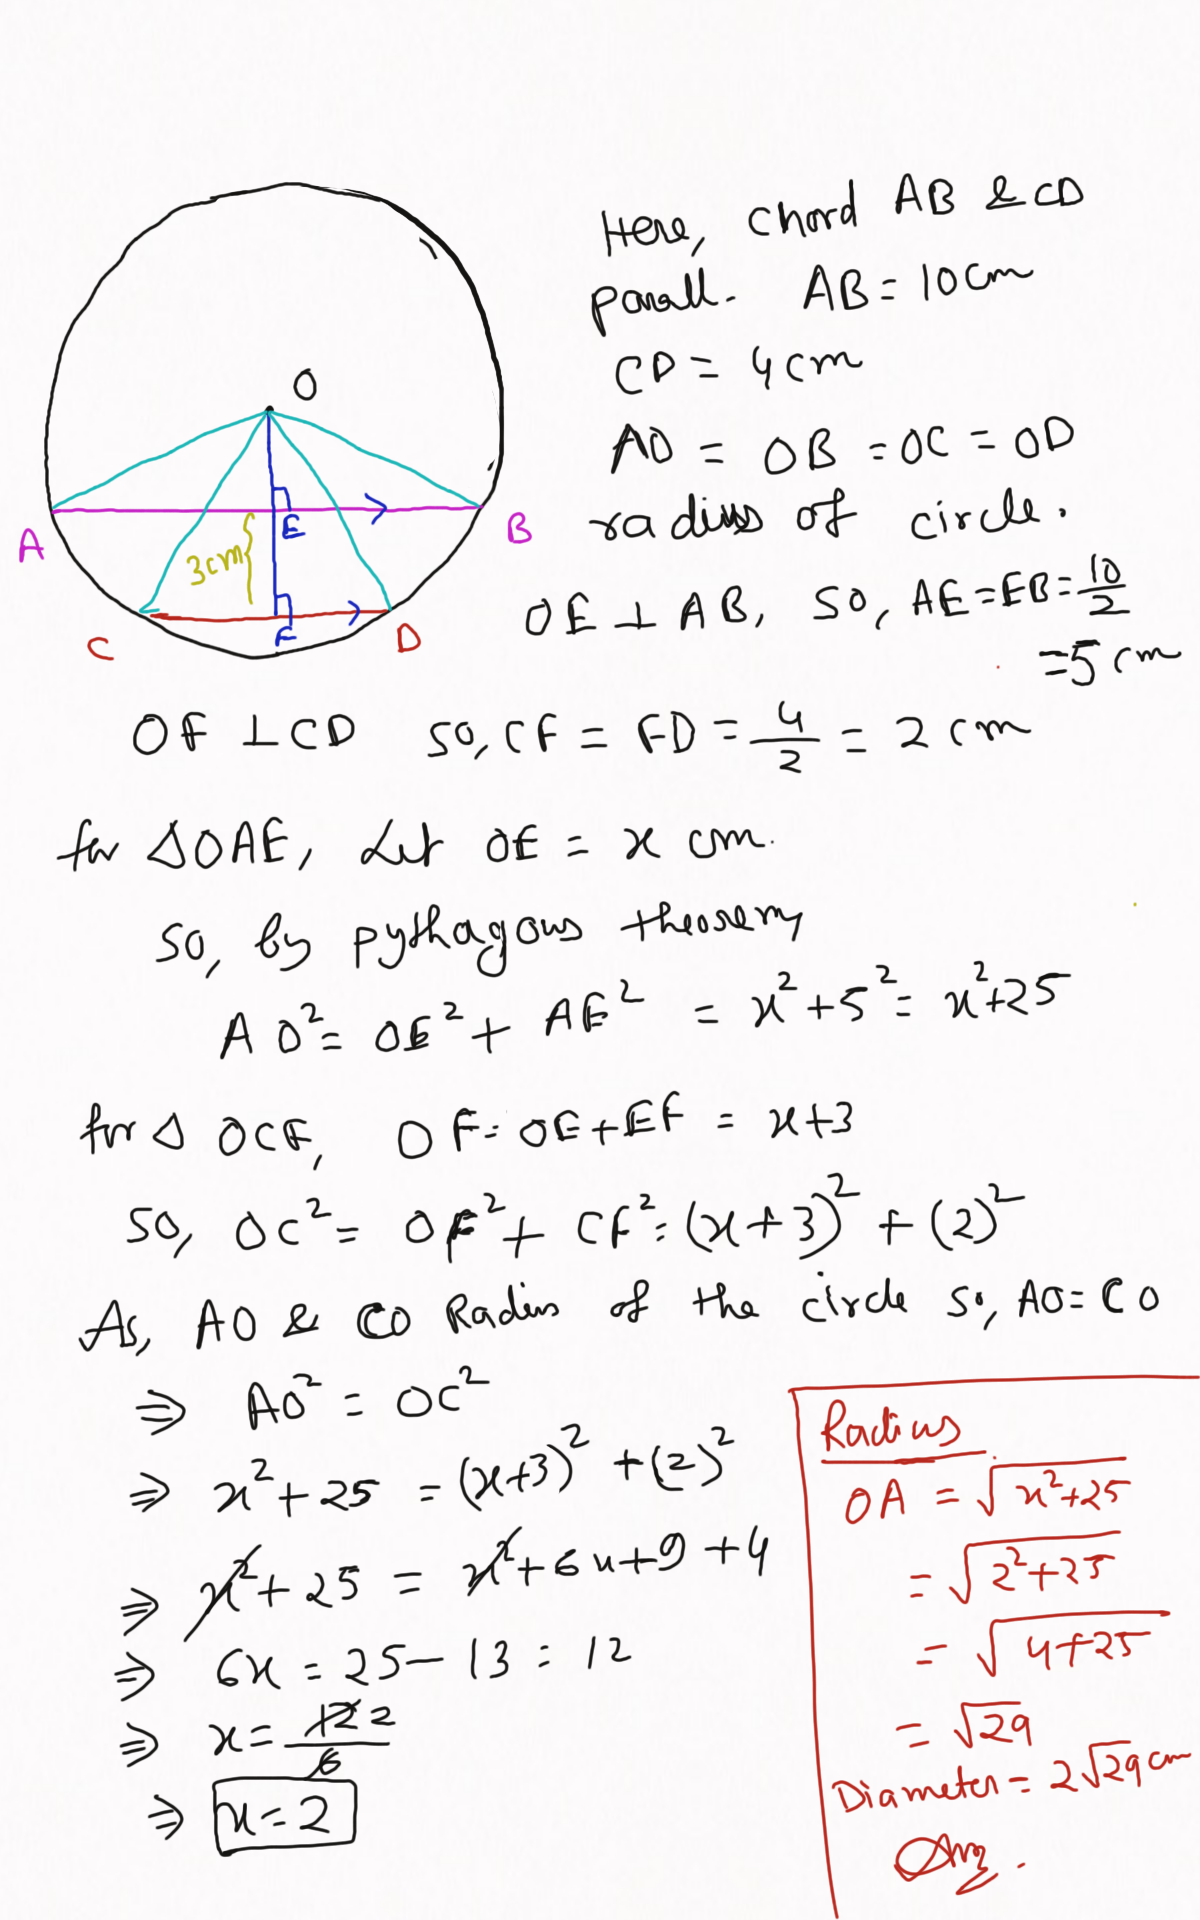 O
A
B
E
3cm
F
C
D
Here, chord AB & CD
parall. AB = 10cm
CD = 4cm
AO = OB = OC = OD
radius of circle.
OE ⊥ AB, so, AE = EB = 10/2
= 5 cm
OF ⊥ CD so, CF = FD = 4/2 = 2 cm
for △OAE, Let OE = x cm.
so, by pythagous theorem
AO² = OE² + AE² = x² + 5² = x² + 25
for △ OCF, OF = OE + EF = x + 3
so, OC² = OF² + CF² = (x+3)² + (2)²
As, AO & CO Radius of the circle so, AO = CO
⇒ AO² = OC²
⇒ x² + 25 = (x+3)² + (2)²
⇒ x² + 25 = x² + 6x + 9 + 4
⇒ 6x = 25 - 13 = 12
⇒ x = 12 2/6
⇒ x = 2
Radius
OA = √x²+25
= √2²+25
= √4+25
= √29
Diameter = 2√29 cm
Ans.